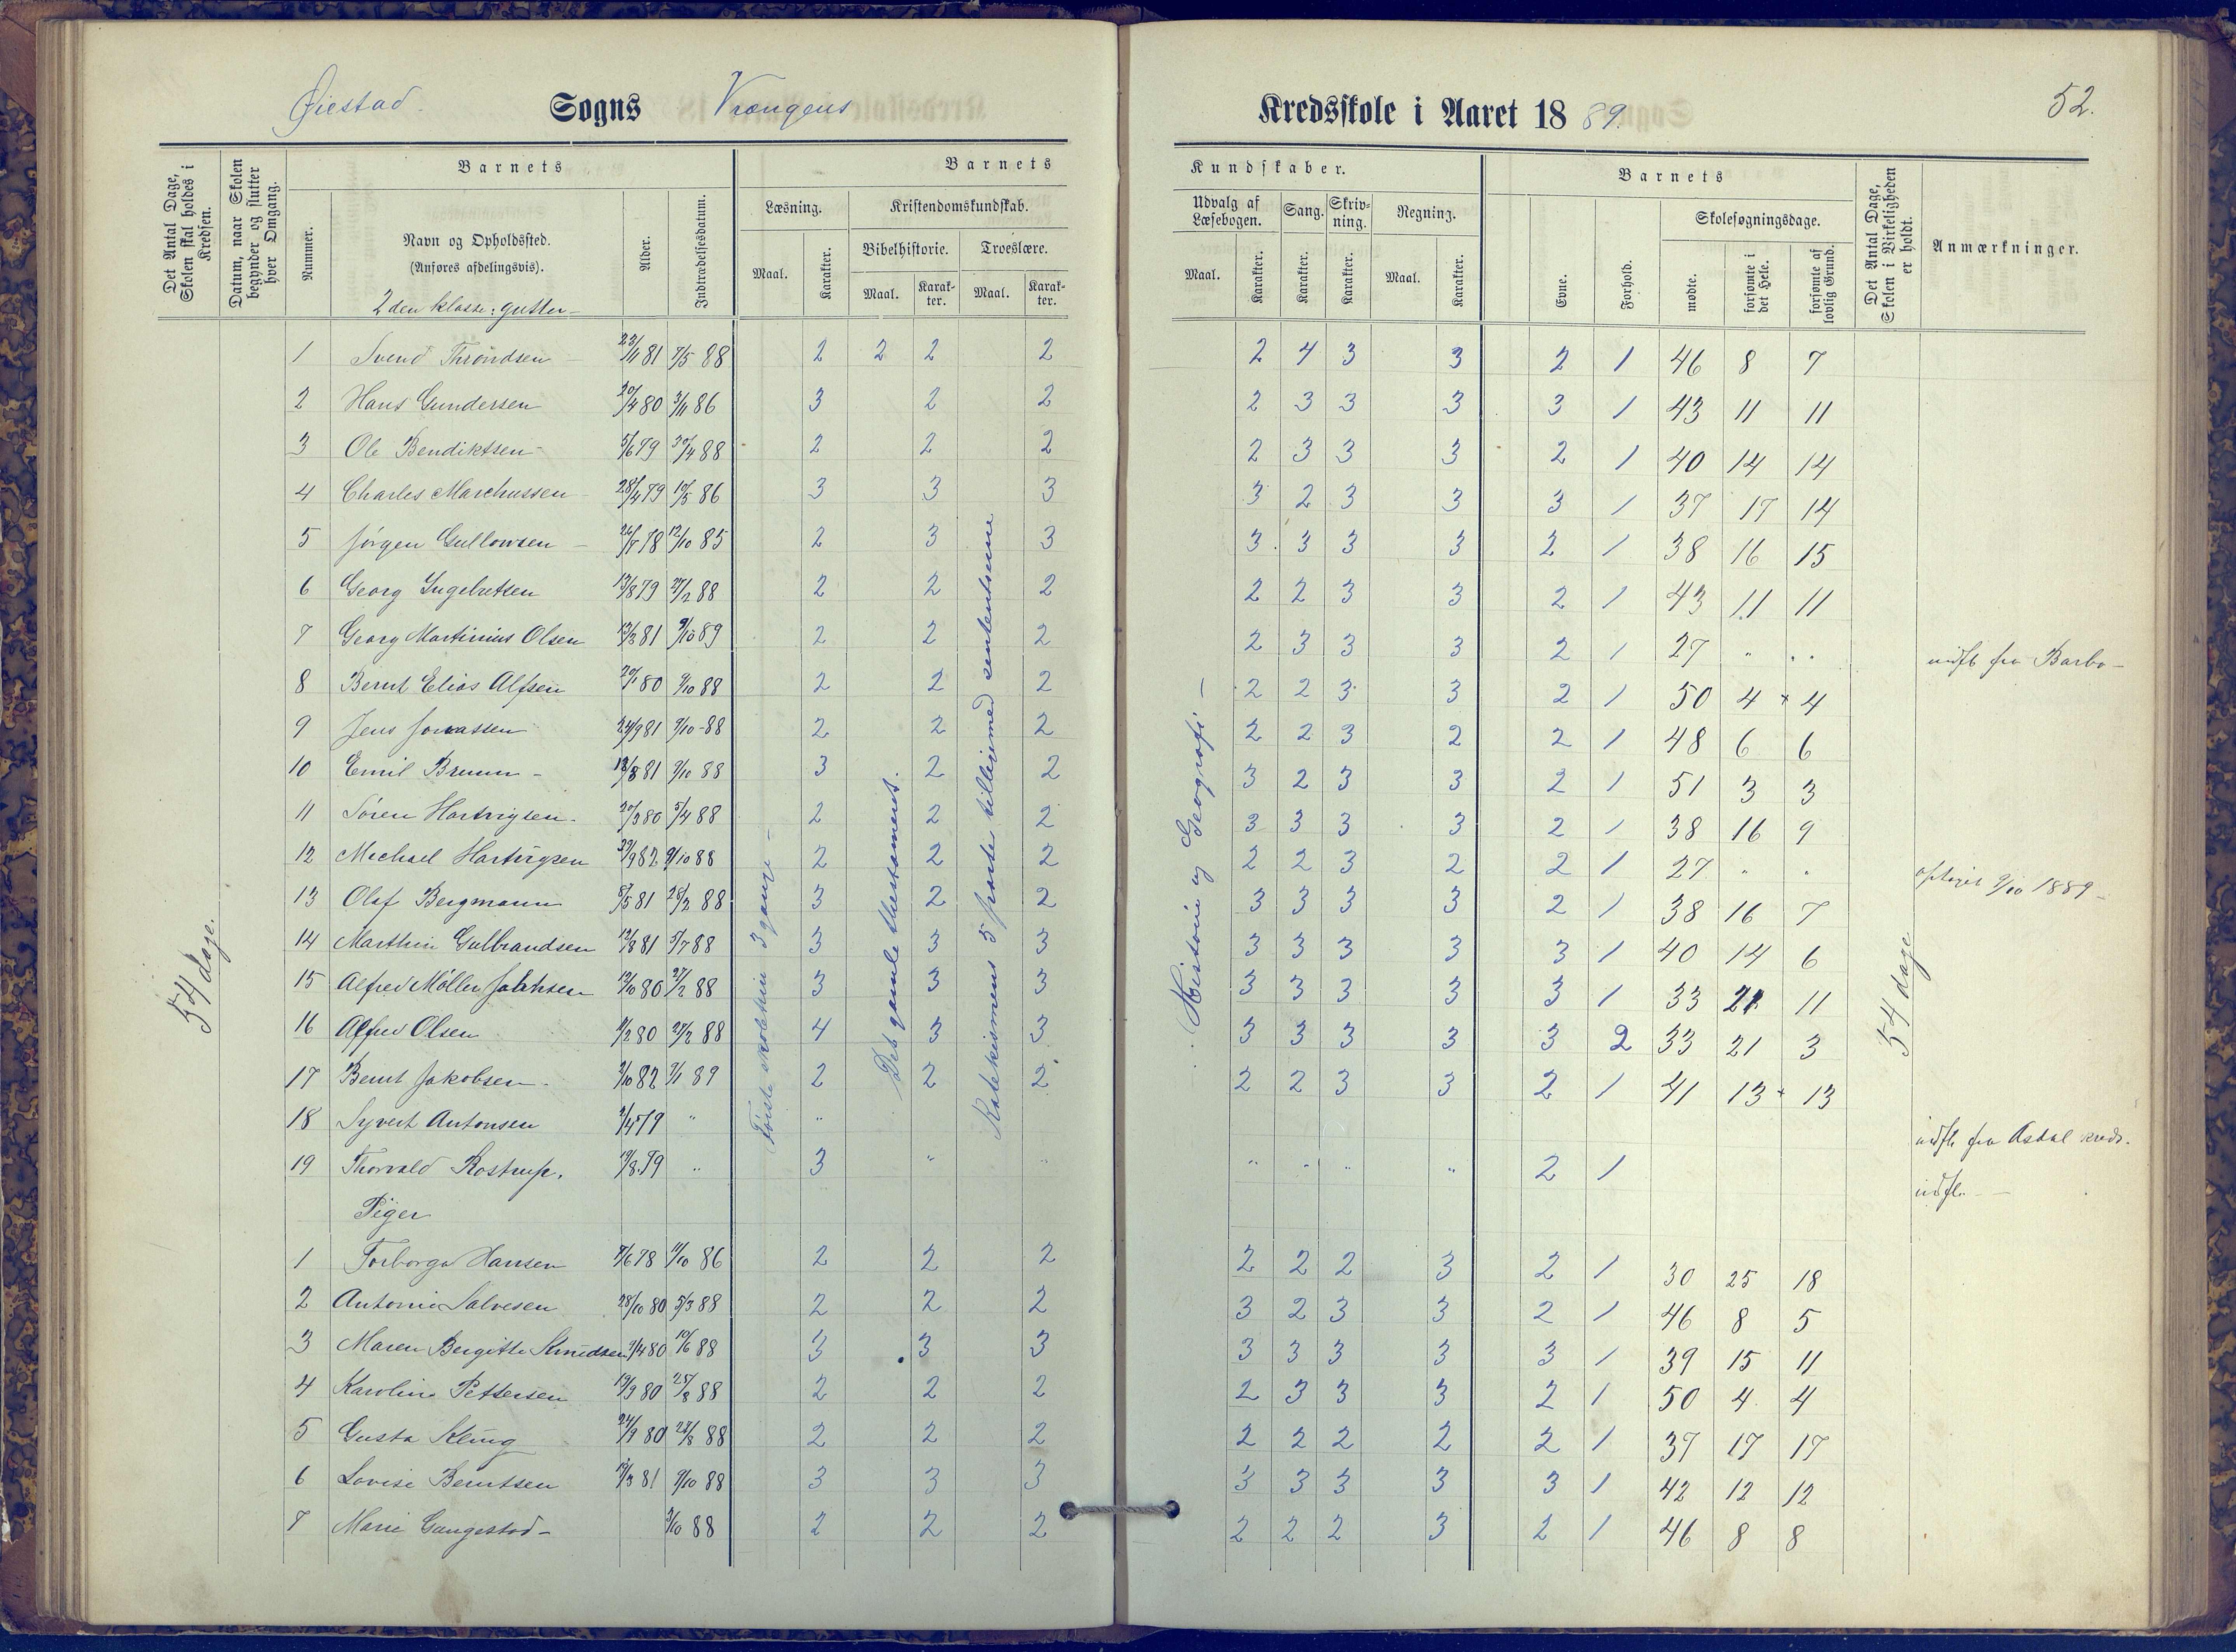 Øiestad Sogns Vrængens Kredsskole i Aaret 1889. 52.
Det Antal Dage, Skolen skal holdes i Kredsen.
Datum, naar Skolen begynder og slutter hver Omgang.
Barnets
Nummer.
Navn og Opholdssted.
(Anføres afdelingsvis).
2den klasse: gutter
Alder.
Indtrædelsesdatum.
Barnets Kundskaber.
Læsning.
Maal. Karakter.
Kristendomskundskab.
Bibelhistorie. Troeslære.
Maal. Karakter. Maal. Karakter.
Udvalg af Læsebogen.
Maal. Karakter.
Sang. Karakter.
Skrivning. Karakter.
Regning.
Maal. Karakter.
Barnets
Evne. Forhold.
Skolesøgningsdage.
mødte. forsømte i det Hele. forsømte af lovlig Grund.
Det Antal Dage, Skolen i Virkeligheden er holdt.
Anmærkninger.
1 Svend Throndsen 23/11 81 7/5 88 2 2 2 2 2 4 3 3 2 1 46 8 7
2 Hans Gundersen 20/4 80 3/11 86 3 2 2 2 3 3 3 3 1 43 11 11
3 Ole Bendiktsen 5/6 79 30/4 88 2 2 2 2 3 3 3 2 1 40 14 14
4 Charles Marchussen 28/4 79 10/5 86 3 3 3 3 2 3 3 3 1 37 17 14
5 Jørgen Gullowsen 78 12/10 85 2 3 3 3 3 3 3 2 1 38 16 15
6 Georg Ingebretsen 13/8 79 27/2 88 2 2 2 2 2 3 3 2 1 43 11 11
7 Georg Martinius Olsen 13/3 81 9/10 89 2 2 2 2 3 3 3 2 1 27 " " indfl. fra Barbo
8 Bernt Elias Alfsen 29/1 80 9/10 88 2 2 2 2 2 3 3 2 1 50 4 4
9 Jens Jonassen 24/9 81 9/10 88 2 2 2 2 2 3 2 2 1 48 6 6
10 Emil Bruun 18/8 81 9/10 88 3 2 2 3 2 3 3 2 1 51 3 3
11 Søren Hartvigsen 20/3 80 5/4 88 2 2 2 3 3 3 3 2 1 38 16 9
12 Michael Hartvigsen 82 9/10 88 2 2 2 2 2 3 2 2 1 27 " " 9/10 1889
13 Olaf Bergmann 8/5 81 28/2 88 3 2 2 3 3 3 3 2 1 38 16 7
14 Marthin Gulbrandsen 12/8 81 5/7 88 3 3 3 3 3 3 3 3 1 40 14 6
15 Alfred Møller 12/10 80 27/2 88 3 3 3 3 3 3 3 3 1 33 21 11
16 Alfred Olsen 80 27/2 88 4 3 3 3 3 3 3 3 2 33 21 3
17 Bernt Jakobsen 82 89 2 2 2 2 2 3 3 2 1 41 13 13
18 Syvert Antonsen 79 " " indfl. fra Asdal kreds.
19 Thorvald Rostrup. 79 " 3 " " " " " " 2 1 indfl.
Piger
1 Torborga Hansen 78 11/10 86 2 2 2 2 2 2 3 2 1 30 25 18
2 Antonie Salvesen 28/10 80 5/3 88 2 2 2 3 2 3 3 2 1 46 8 5
3 Maren Bergitte Knudsen 80 10/6 88 3 3 3 3 3 3 3 3 1 39 15 11
4 Karoline Pettersen 19/9 80 25/8 88 2 2 2 2 3 3 3 2 1 50 4 4
5 Gusta Kling 24/9 80 88 2 2 2 2 2 2 2 2 1 37 17 17
6 Lovise Berntsen 81 9/10 88 3 3 3 3 3 3 3 3 1 42 12 12
7 Marie Gangestad 3/10 88 2 2 2 2 2 2 3 2 1 46 8 8
54 dage.
Første 3 gange
Det gamle thestamenet.
Katekismens 5 parter tilligemed sententserne
Historie og Geografi
54 dage